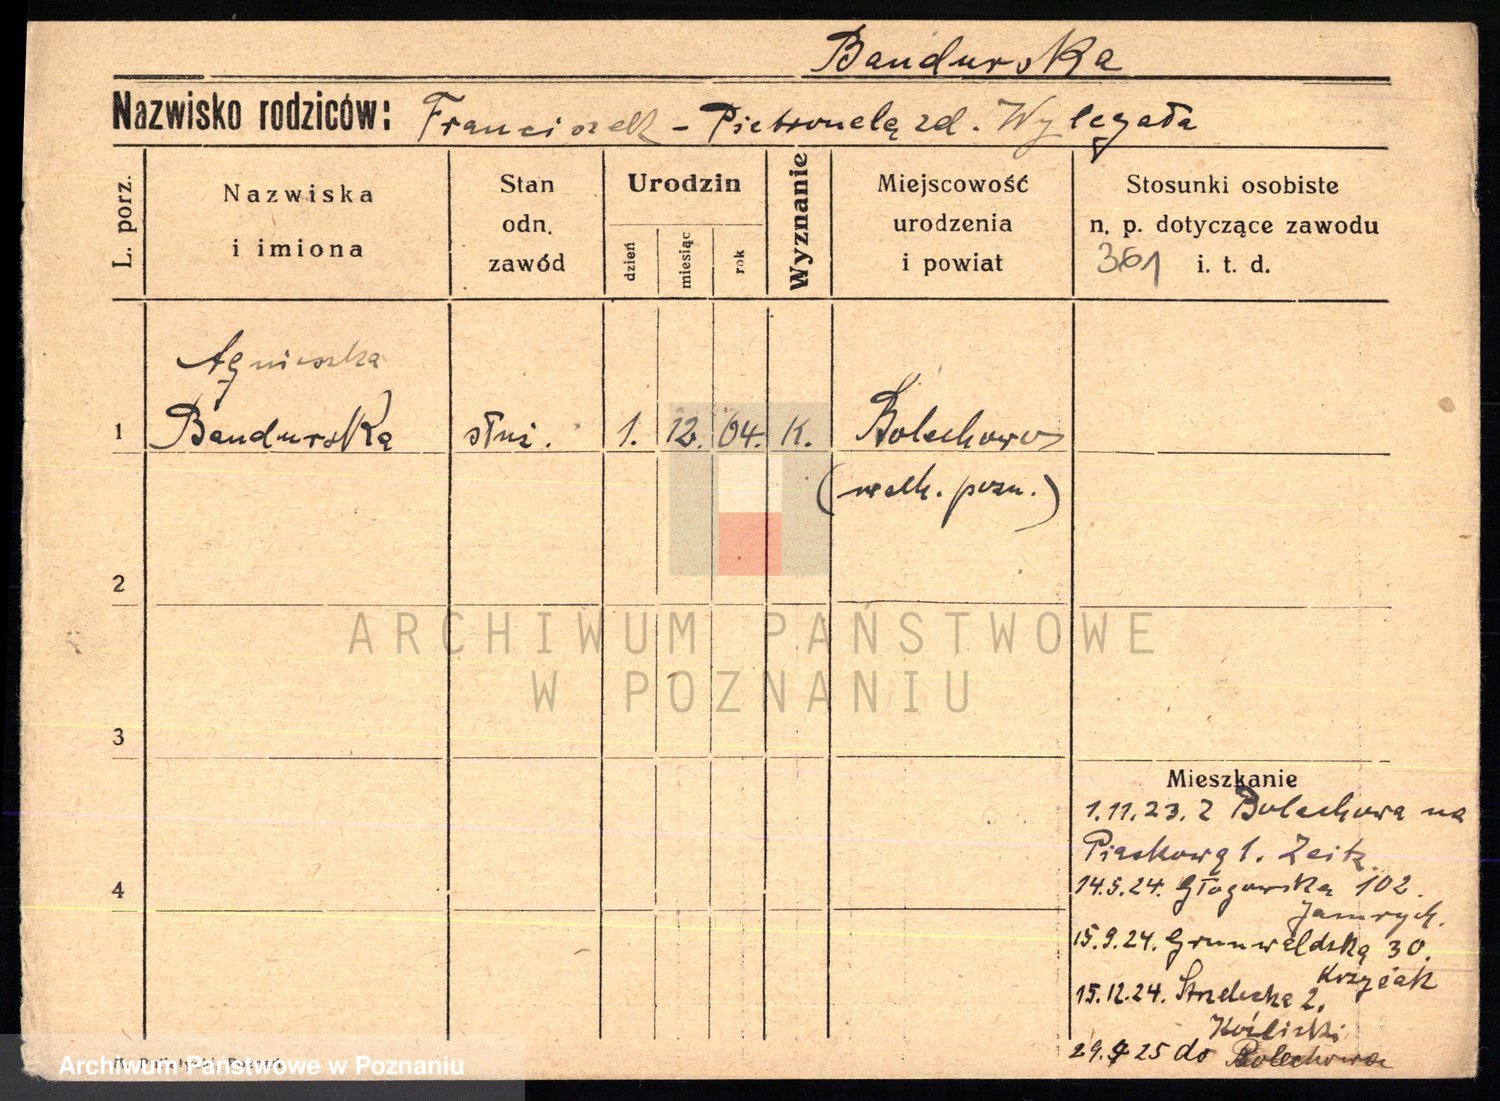 Bandurska
Nazwisko rodziców: Franciszek - Pietronelą zd. Wylegała
L. porz.
Nazwiska
i imiona
Stan
odn.
zawód
Urodzin
dzień
miesiąc
rok
Wyznanie
Miejscowość
urodzenia
i powiat
Stosunki osobiste
n. p. dotyczące zawodu
361 i. t. d.
Agnieszka
1 Bandurska służ. 1. 12. 04. K. Bolechowo
(welk. pozn.)
2
3
4
ARCHIWUM PAŃSTWOWE
W POZNANIU
Mieszkanie
1.11.23. z Bolechowa na
Piaskową 1. Zeitz.
14.5.24. Głogowska 102.
Jamrych.
15.9.24. Grunwaldska 30.
Krzyżak
15.12.24. Strzelecka 2.
29. 25 do Bolechowa
Archiwum Państwowe w Poznaniu